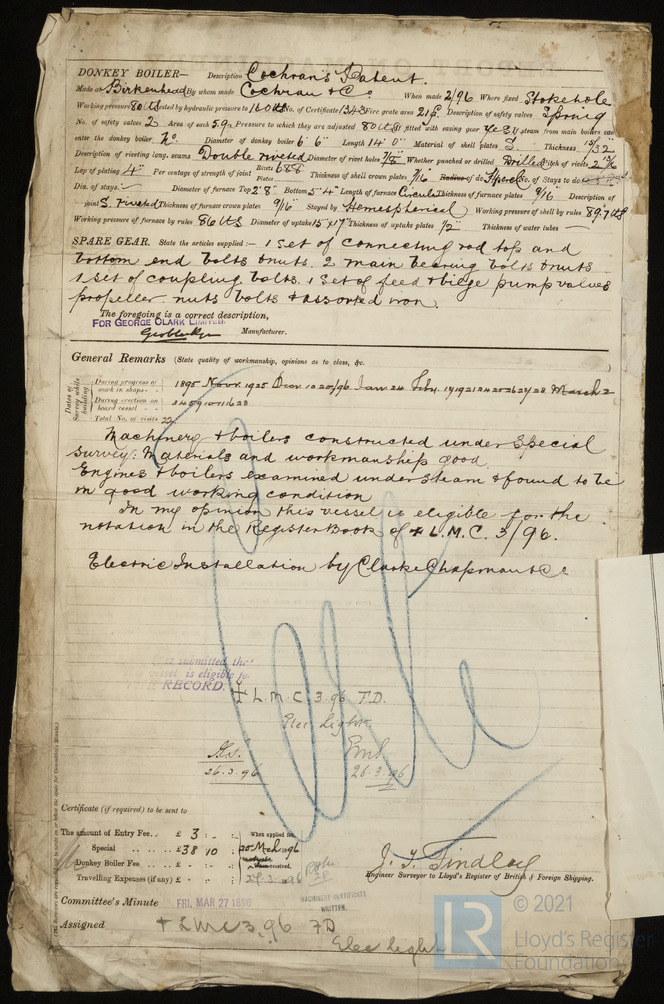 DONKEY BOILER— Description Cochran's Patent.
Made at Birkenhead By whom made Cochran & Co When made 2/96 Where fixed Stokehole
Working pressure 80 lbs tested by hydraulic pressure to 160 lbs No. of Certificate 1343 Fire grate area 21 Description of safety valves Spring
No. of safety valves 2 Area of each 5.9 Pressure to which they are adjusted 80 lbs If fitted with easing gear Yes If steam from main boilers can
enter the donkey boiler No. Diameter of donkey boiler 6' 6" Length 14' 0" Material of shell plates S. Thickness 15/32
Description of riveting long. seams Double riveted Diameter of rivet holes 7/8 Whether punched or drilled Drilled Pitch of rivets
Lap of plating 4" Per centage of strength of joint Rivets 68.8 Plates Thickness of shell crown plates 9/16 Radius of do. No. of Stays to do.
Dia. of stays. — Diameter of furnace Top 2' 8" Bottom 5' 4" Length of furnace Thickness of furnace plates 9/16 Description of
joint S. riveted Thickness of furnace crown plates 9/16 Stayed by Hemespherical Working pressure of shell by rules 89.7 lbs
Working pressure of furnace by rules 86 lbs Diameter of uptake 15" x 17" Thickness of uptake plates 1/2" Thickness of water tubes —
SPARE GEAR. State the articles supplied:— 1 set of connecting rod top and
bottom end bolts & nuts. 2 main bearing bolts & nuts
1 set of coupling bolts. 1 set of feed & bilge pump valves
propeller nuts bolts & assorted iron.
The foregoing is a correct description,
FOR GEORGE CLARK LIMITED.
Manufacturer.
General Remarks (State quality of workmanship, opinions as to class, &c.
Dates of Survey while building
During progress of work in shops - - 1895 Novr. 19 25 Decr. 10 20/96 Jan. 24 Feby. 17 19 21 24 25 26 27 28 March 2
During erection on board vessel - - - 2 4 5 9 10 11 16 23
Total No. of visits 22
Machinery & boilers constructed under Special
Survey: Materials and workmanship good.
Engines & boilers examined under steam & found to be
in good working condition
In my opinion this vessel is eligible for the
notation in the Register Book of + L.M.C. 3/96.
Electric Installation by Clarke Chapman & Co
is submitted that
vessel is eligible for
THE RECORD. + L.M.C. 3.96 F.D.
Elec Light
26.3.96 26.3.96
Certificate (if required) to be sent to
The amount of Entry Fee.. £ 3 : - : When applied for,
Special .. .. £ 38 : 10 : 20 March 1896
Donkey Boiler Fee .. .. £ - : - : When received.
Travelling Expenses (if any) £ - : - : 1896
J. T. Findlay
Engineer Surveyor to Lloyd's Register of British & Foreign Shipping.
Committee's Minute FRI. MAR 27 1896
MACHINERY CERTIFICATE
WRITTEN.
Assigned + LMC 3.96 FD
Elec Light
LR © 2021
Lloyd's Register
Foundation